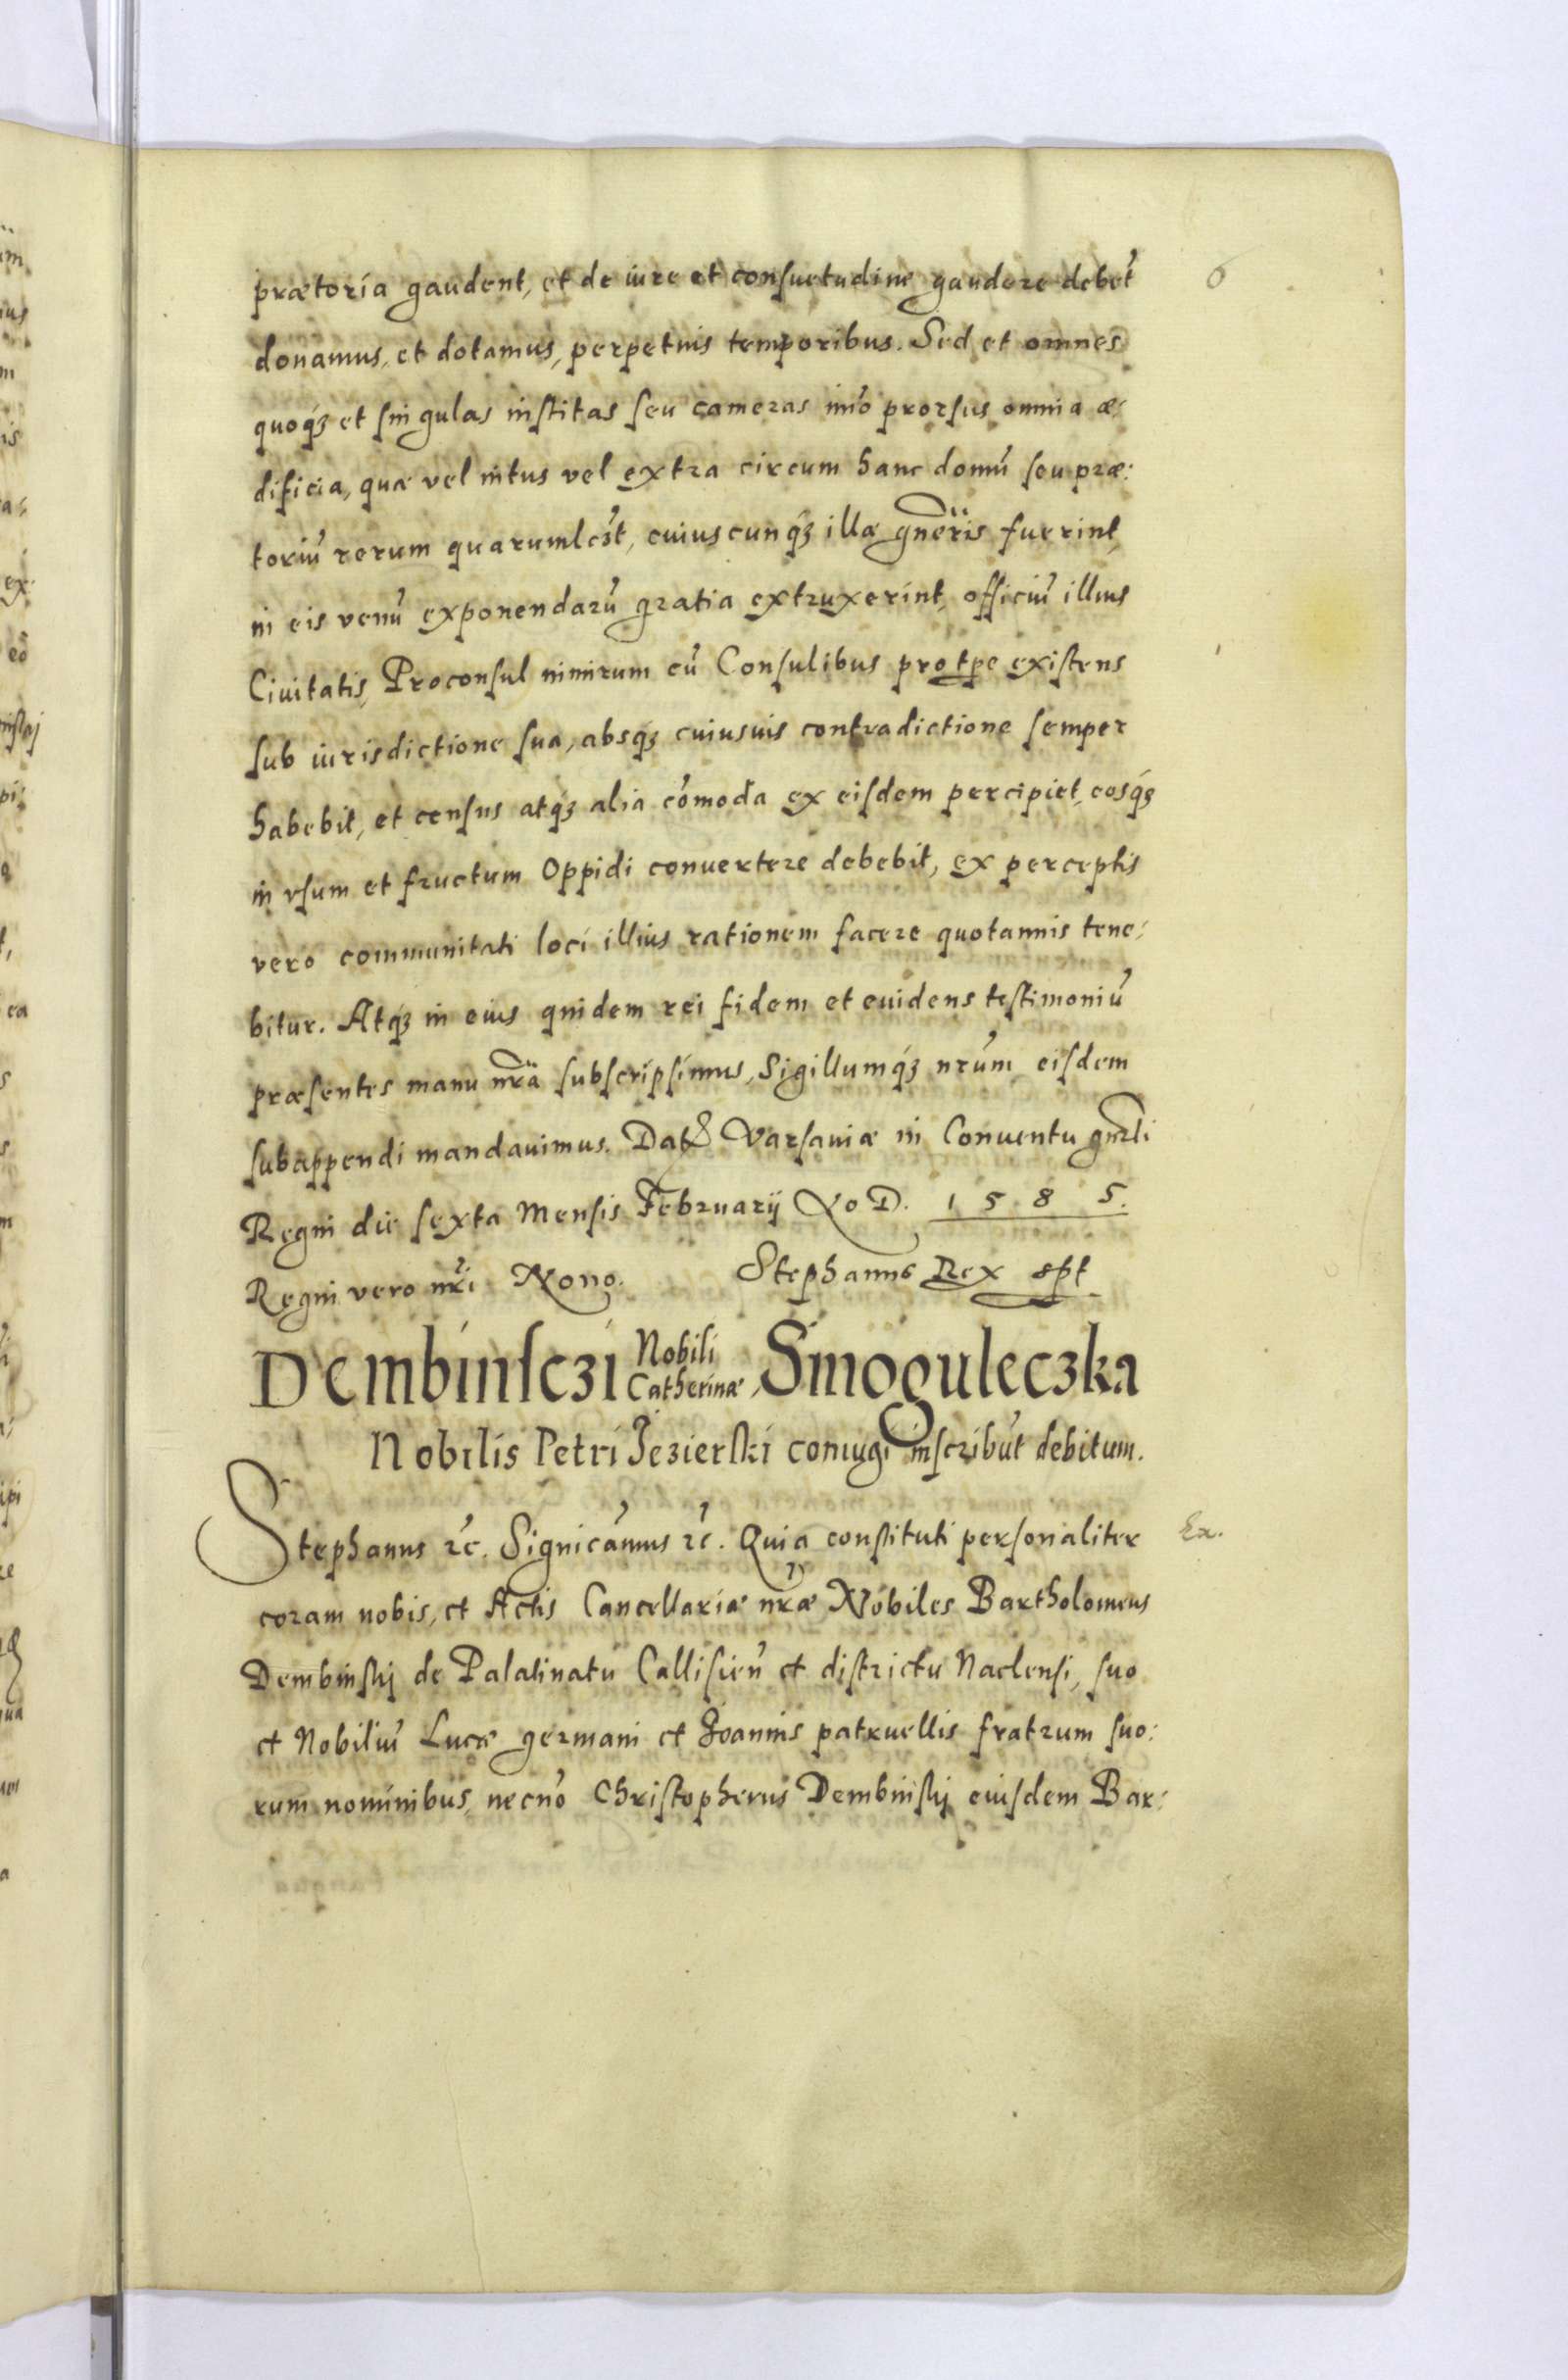 6
prætoria gaudent, et de iure et consuetudine gaudere debet̃
donamus, et dotamus, perpetuis temporibus. Sed et omnes
quoq́ꝫ et singulas institas seu cameras imo̓ prorsus omnia æ:
dificia, quæ vel intus vel extra circum hanc domū seu præ:
toriū rerum quarumlcꝫt, cuiuscunq́ꝫ illæ gñeris fuerint,
in eis venū exponendarū gratia extruxerint, officiū illius
Ciuitatis, Proconsul nimirum cū Consulibus pro tp̱e existens
sub iurisdictione sua, absq́ꝫ cuiusuis contradictione semper
habebit, et census atq́ꝫ alia cōmoda ex eisdem percipiet, eosq́ꝫ
in vsum et fructum Oppidi conuertere debebit, ex perceptis
vero communitati loci illius rationem facere quotannis tene:
bitur. Atq́ꝫ in eius quidem rei fidem et euidens testimoniū
præsentes manu nr̃a subscripsimus, Sigillumq́ꝫ nrūm eisdem
subappendi mandauimus. Datꝭ Varsauiæ in Conuentu gnrli
Regni die sexta Mensis February Ao D. 1585.
Regni vero nr̃i Nono. Stephanus Rex spt
Dembinsczi Nobili Catherinæ, Smoguleczka
Nobilis Petri Jezierski coniugi inscribūt debitum.
Stephanus rc̃. Signicãmus rc̃. Quia constituti personaliter
Ex.
coram nobis, et Actis Cancellariæ nr̃æ Nobiles Bartholomeus
Dembinskj de Palatinatu Callisien̄ et districtu Naclensi, suo
et Nobiliū Lucæ germani et Joannis patruellis fratrum suo:
rum nominibus, necno̓ Christopherus Dembinskj eiusdem Bar: